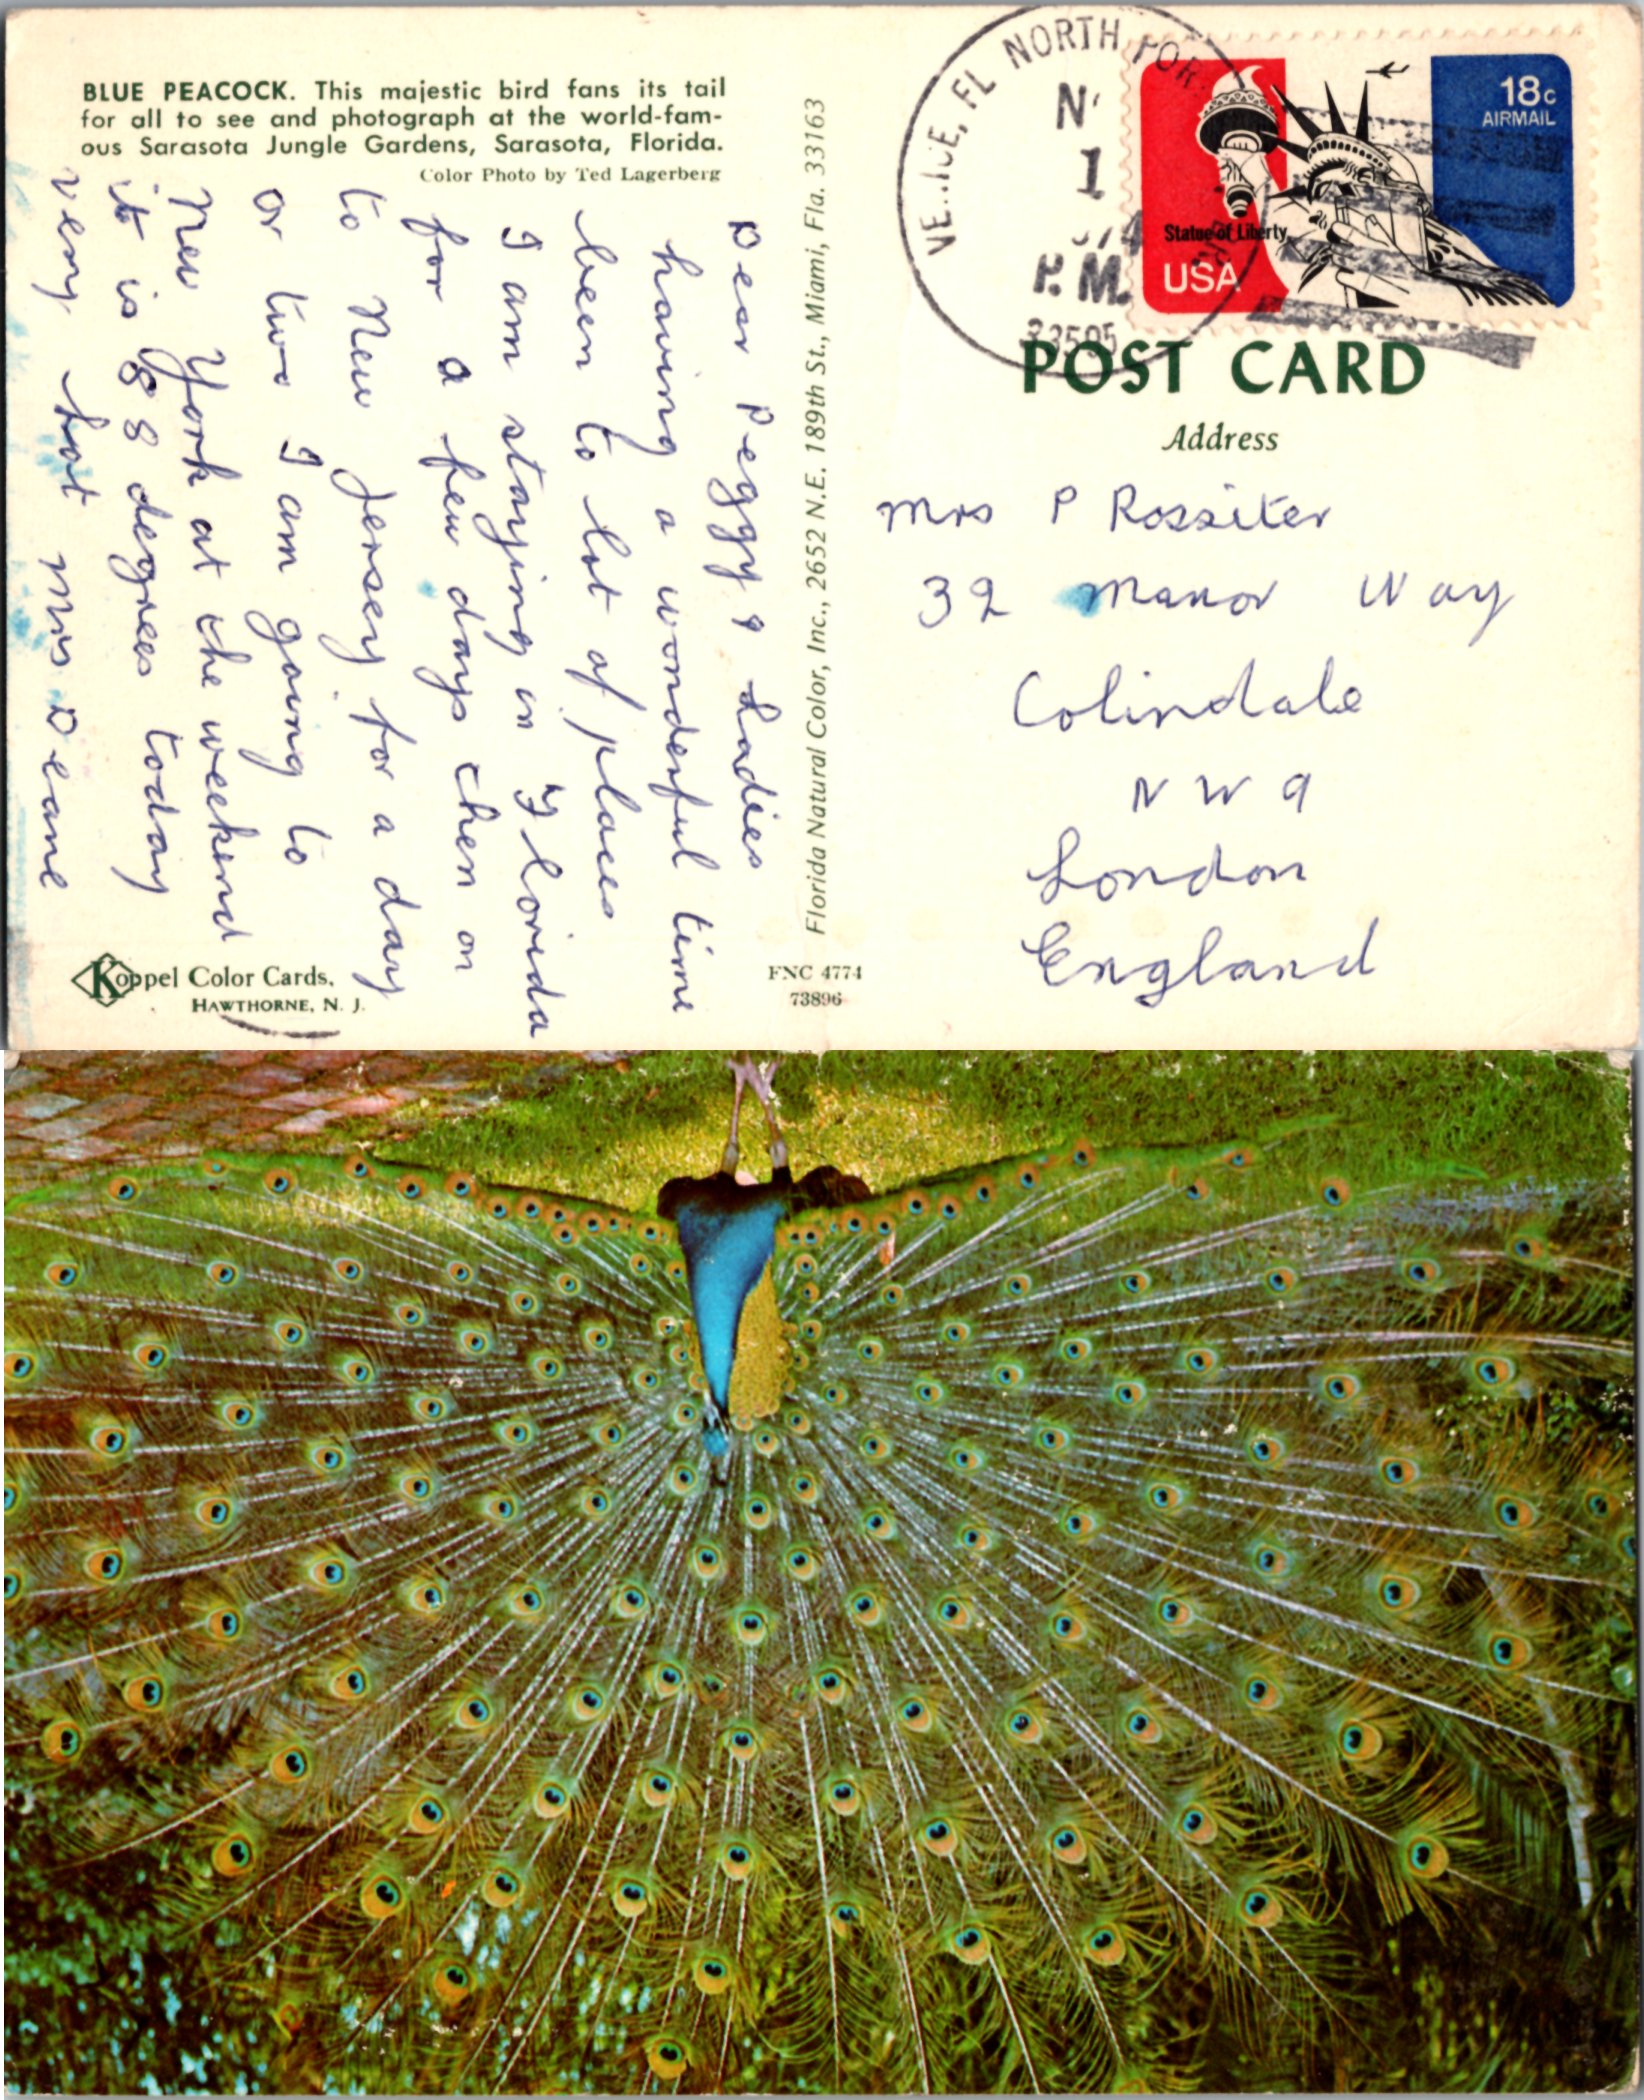 BLUE PEACOCK. This majestic bird fans its tail
for all to see and photograph at the world-fam-
ous Sarasota Jungle Gardens, Sarasota, Florida.
Color Photo by Ted Lagerberg
Dear Peggy & Ladies
having a wonderful time
been to lot of places
I am staying in Florida
for a few days then on
to New Jersey for a day
or two I am going to
New York at the weekend
it is 88 degrees today
very hot Mrs Deane
Koppel Color Cards,
HAWTHORNE, N. J.
Florida Natural Color, Inc., 2652 N.E. 189th St., Miami, Fla. 33163
FNC 4774
73896
FL NORTH POR
1
P.M.
33595
18c
AIRMAIL
Statue of Liberty
USA
POST CARD
Address
Mrs P Rossiter
32 Manor Way
Colindale
N W 9
London
England